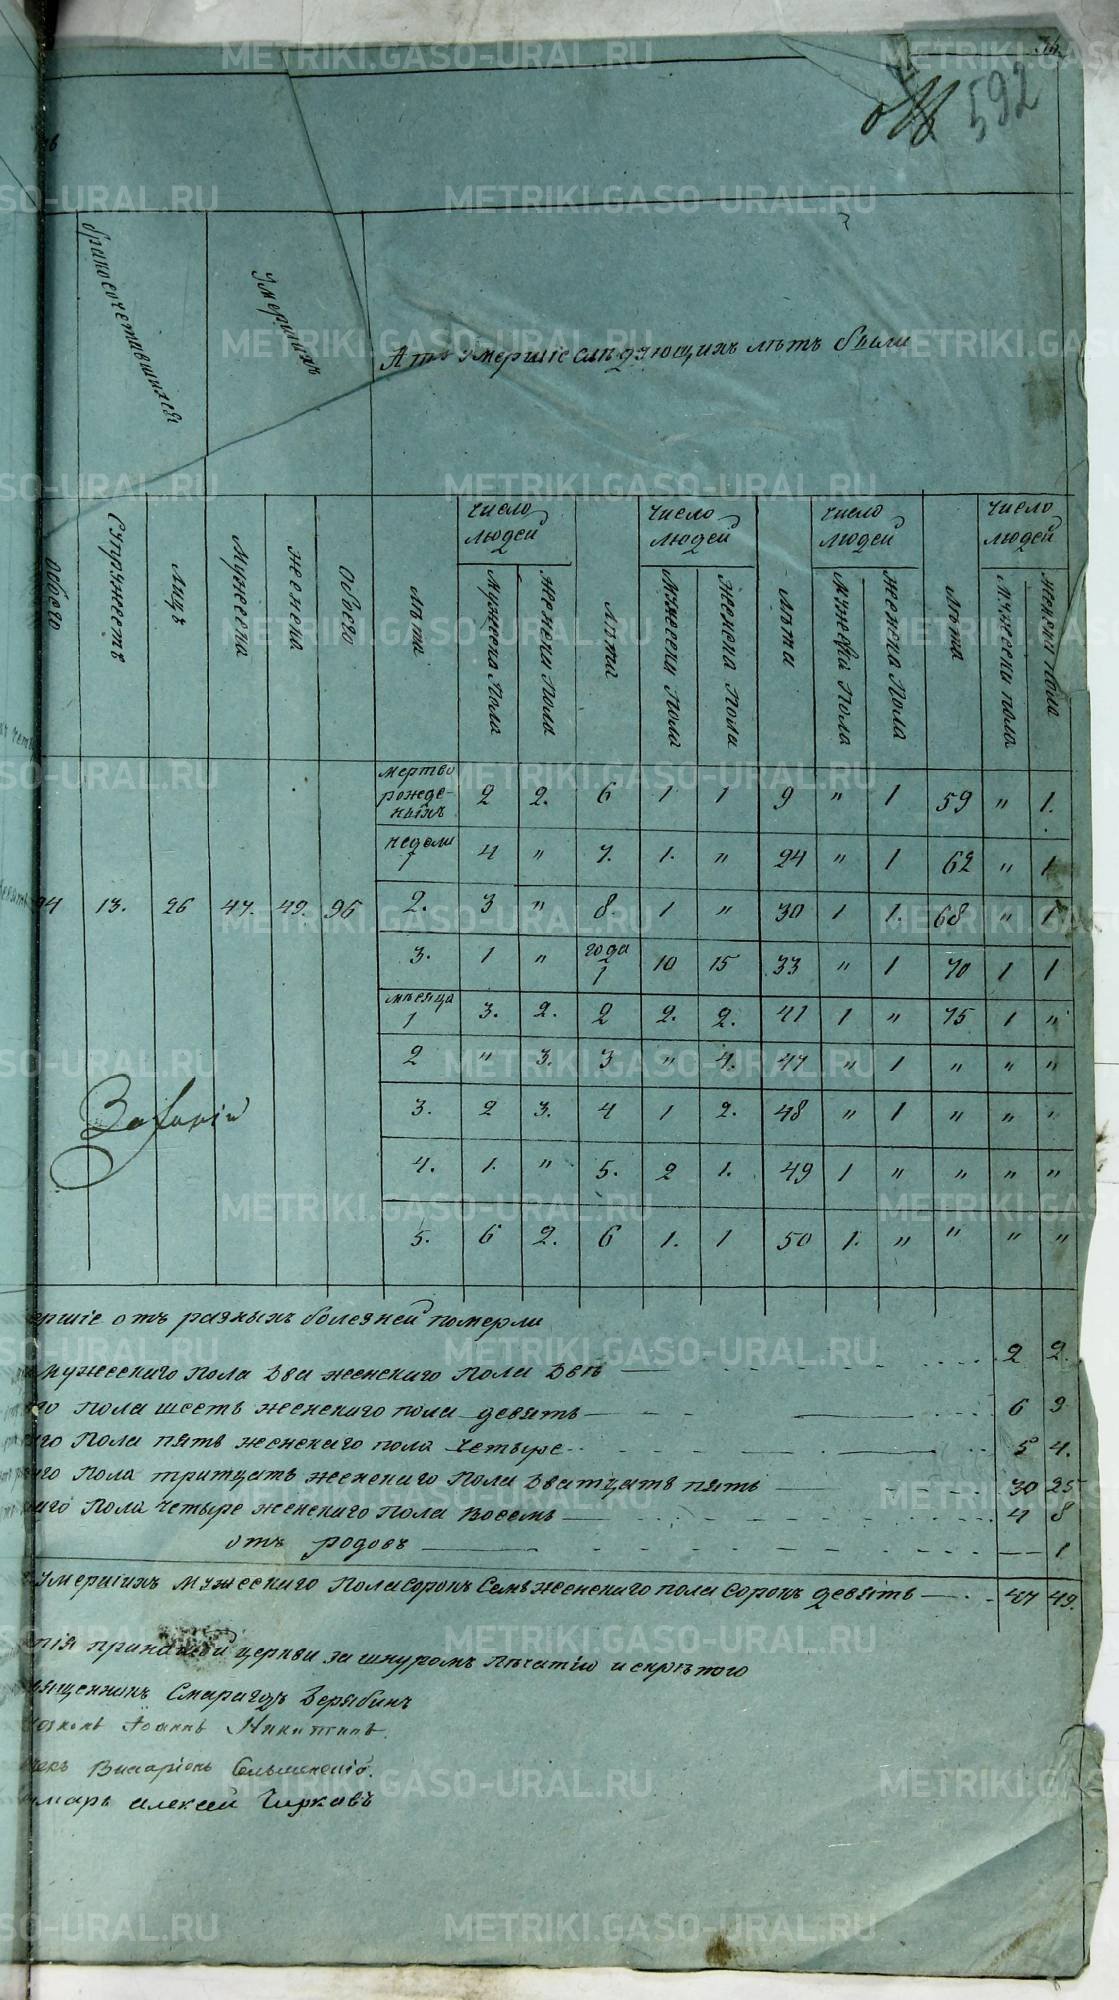 592
бракосочетавшихся
Умершихъ
А тѣ умершіе слѣдующихъ лѣтъ были
общего
Супружествъ
лицъ
Мужеска
женска
Общего
лѣта
число людей
Мужеска Пола
Женска Пола
Лѣта
число людей
Мужеска Пола
Женска Пола
Лѣта
число людей
Мужеска Пола
Женска Пола
Лѣта
число людей
Мужеска пола
женска пола
мертворожденыхъ 2 2. 6 1. 1 9 " 1 59 " 1.
недели 1 4 " 7. 1. " 24 " 1 62 " 1
94 13. 26 47. 49. 96 2. 3 " 8. 1 " 30 1 1. 68 " 1
3. 1 " года 1 10 15 33 " 1 70 1 1
мѣсяца 1 3. 2. 2 2. 2. 41 1 " 75 1 "
2 " 3. 3 " 4. 47 " 1 " " "
3. 2 3. 4 1 2. 48 " 1 " " "
4. 1. " 5. 2 1. 49 1 " " " "
5. 6 2. 6 1. 1 50 1. " " " "
ершіе отъ разныхъ болезней померли
Мужескаго Пола два женскаго Пола двѣ 2 2.
го Пола шесть женскаго пола девять 6 9
го Пола пять женскаго пола четыре 5 4.
го Пола тритцать женскаго Пола дватцать пять 30 25
каго Пола четыре женскаго Пола восемь 4 8
отъ родовъ — 1
Умершихъ Мужескаго Пола сорокъ семь женскаго пола сорокъ девять 47 49.
церкви за шнуромъ печатію и скрѣпою
вященникъ Смарагдъ Дерябинъ
Іоаннъ Никитинъ.
Виссаріонъ
марь Алексей Чирковъ
METRIKI.GASO-URAL.RU